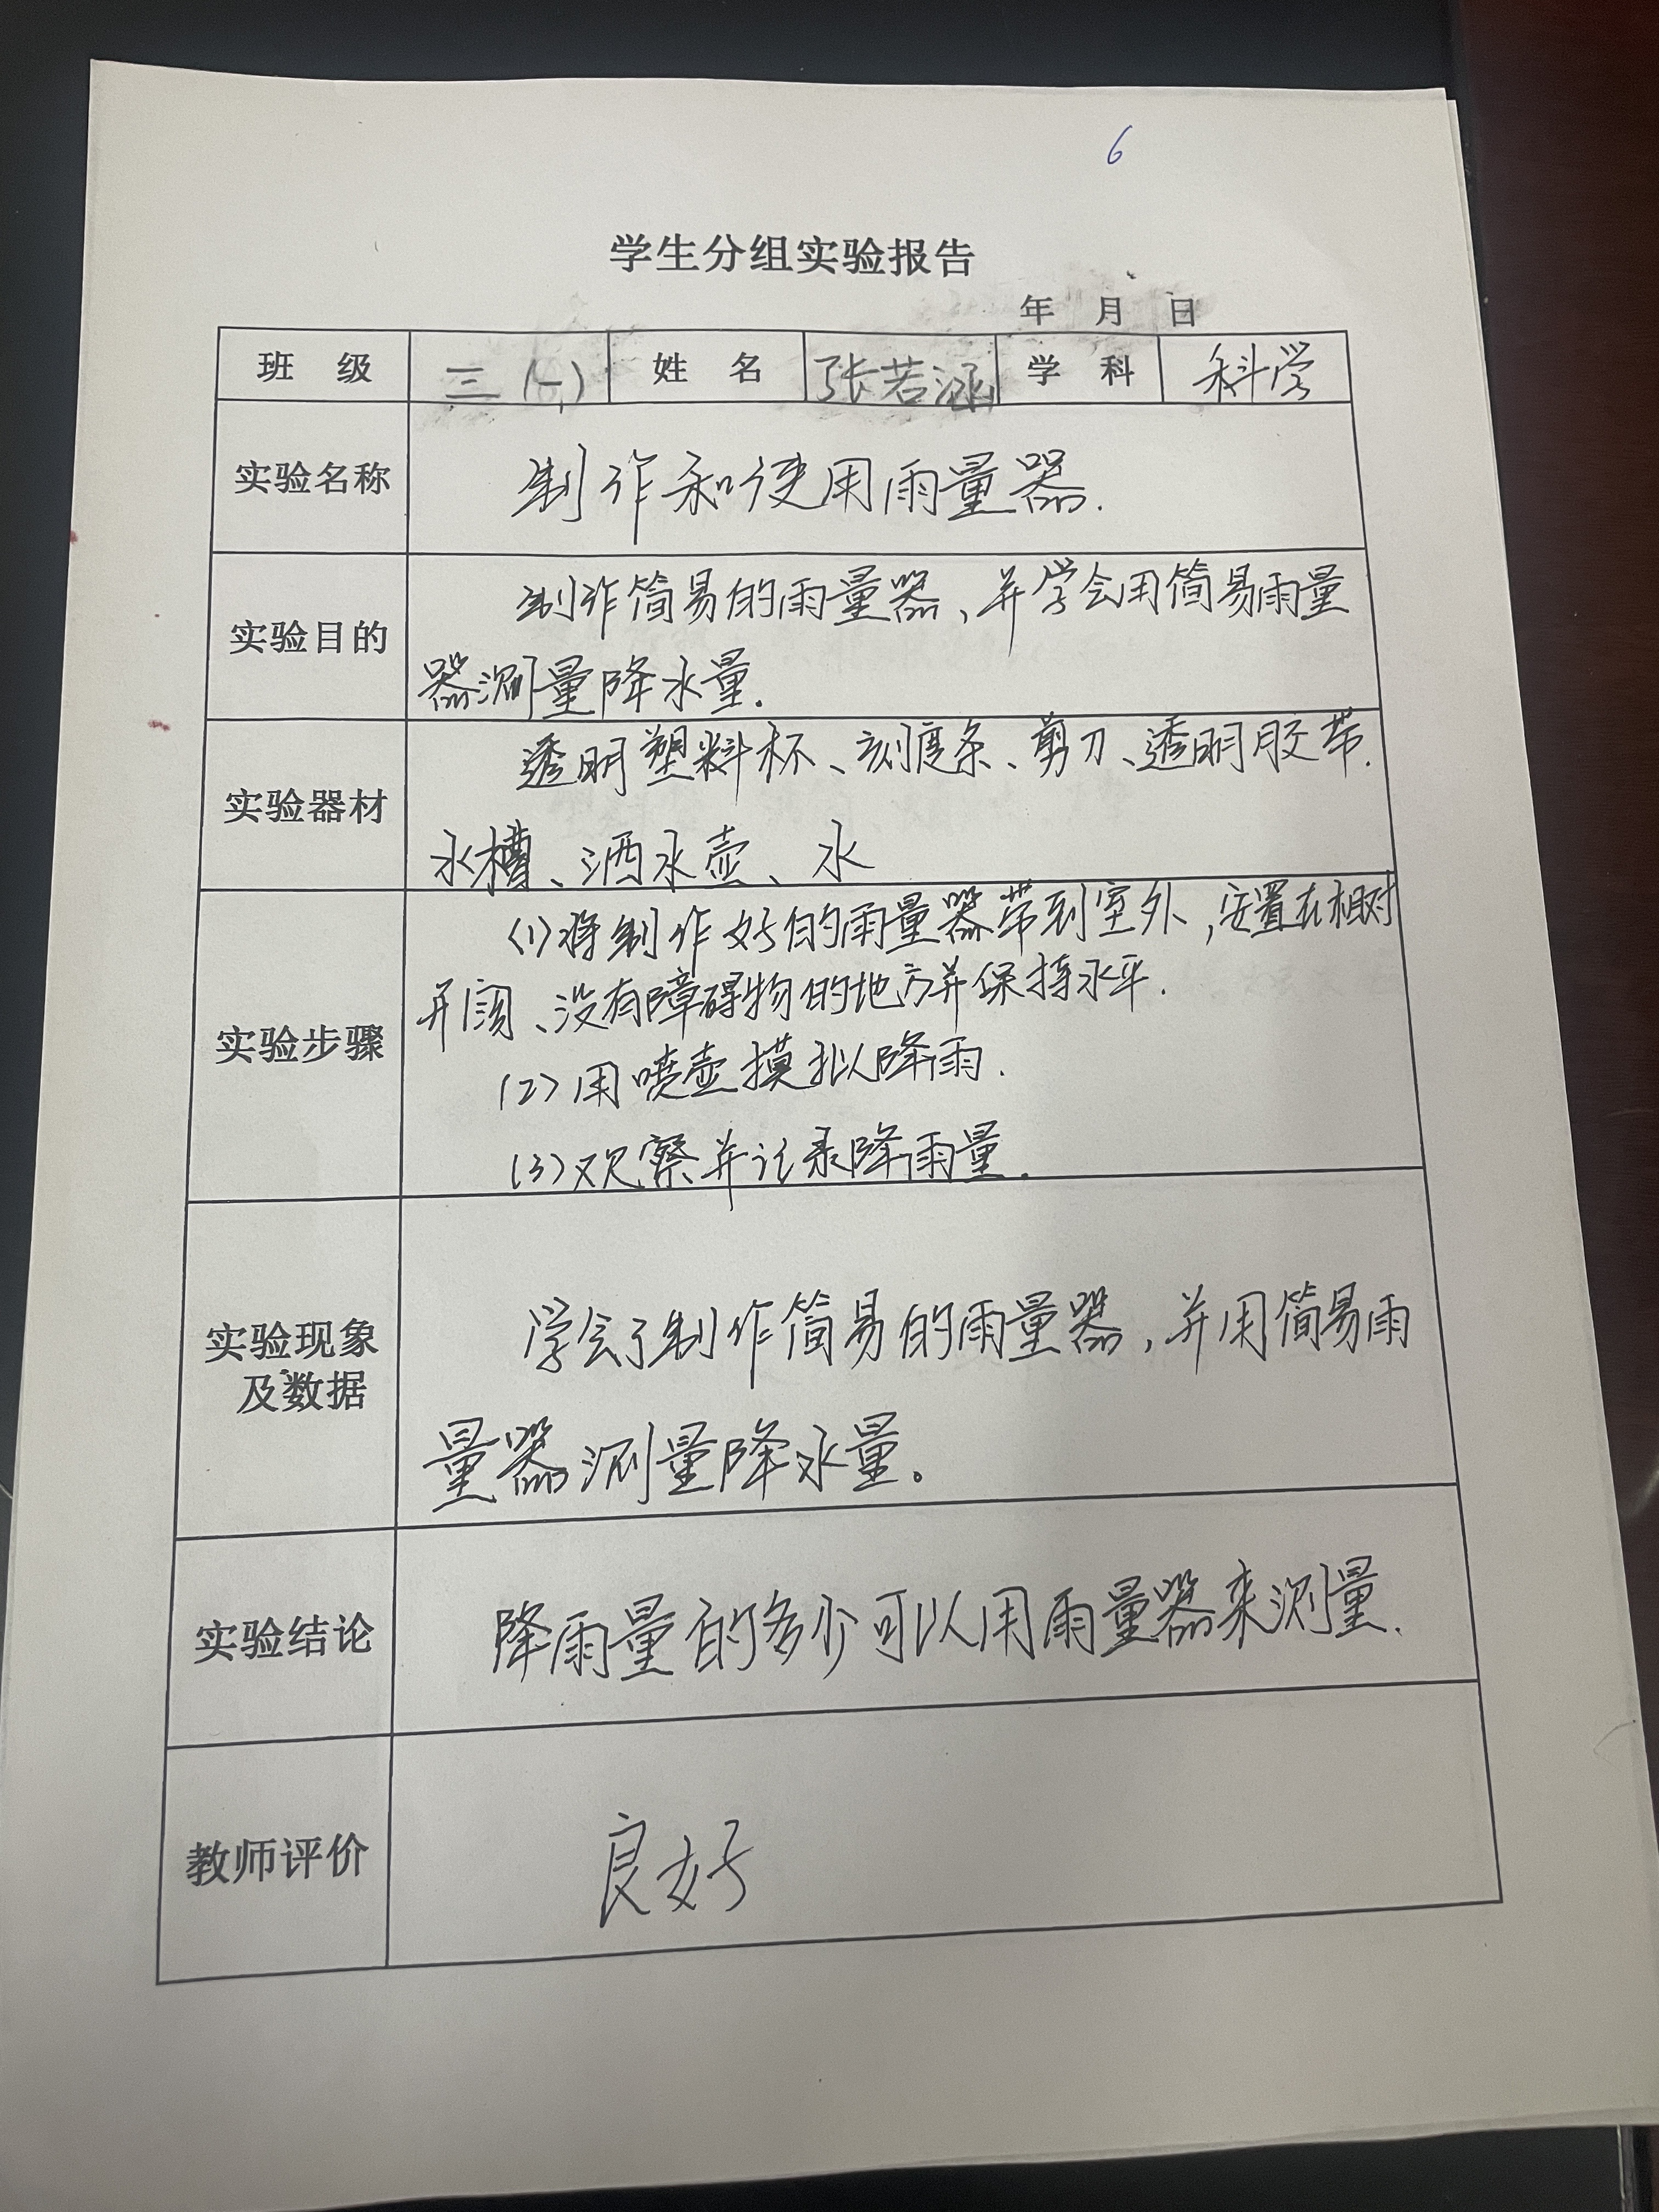 6
学生分组实验报告
年 月 日
班 级 三(一) 姓 名 张若涵 学 科 科学
实验名称 制作和使用雨量器.
实验目的 制作简易的雨量器、并学会用简易雨量
器测量降水量.
实验器材 透明塑料杯、刻度条、剪刀、透明胶带.
水槽、洒水壶、水
实验步骤 (1)将制作好的雨量器带到室外,安置在相对
开阔、没有障碍物的地方并保持水平.
(2)用喷壶摸拟降雨.
(3)观察并记录降雨量.
实验现象
及数据 学会了制作简易的雨量器,并用简易雨
量器测量降水量。
实验结论 降雨量的多少可以用雨量器来测量.
教师评价 良好